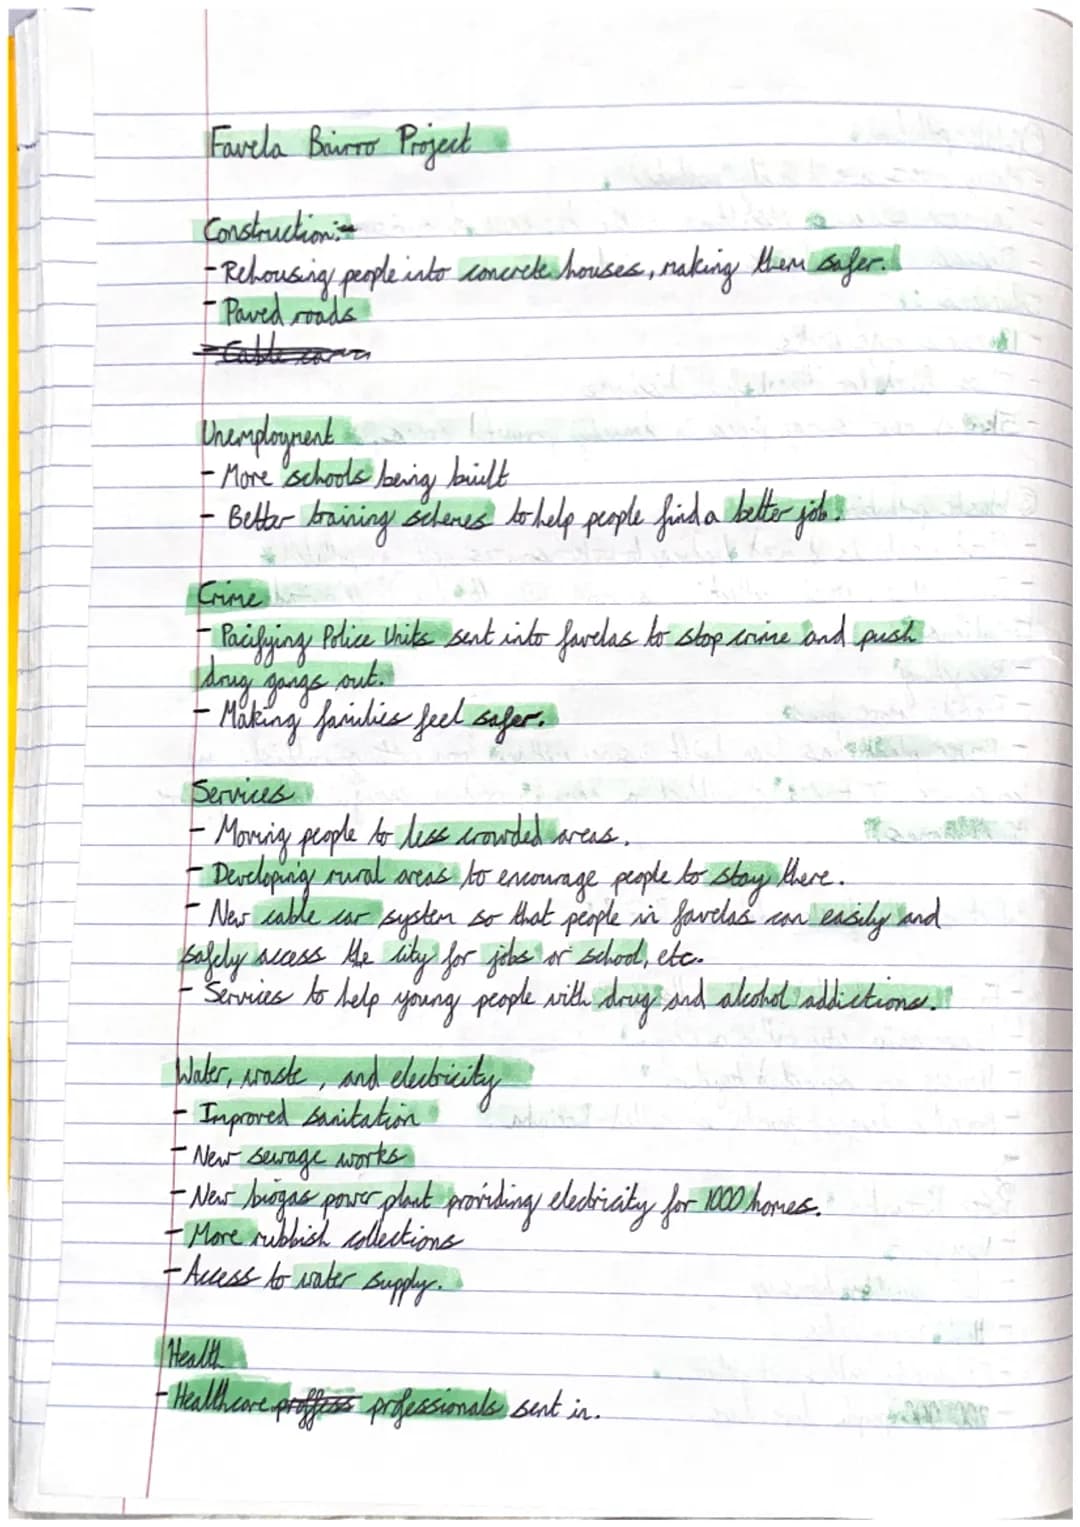 Favela Bairro Project
Construction:-
- Rehousing people into concrete houses, making them safer.
- Paved roads
- Cable cars
Unemployment
- More schools being built
- Better training schemes to help people find a better job.
Crime
- Pacifying Police Units sent into favelas to stop crime and push
drug gangs out.
- Making families feel safer.
Services
- Moving people to less crowded areas.
- Developing rural areas to encourage people to stay there.
- New cable car system so that people in favelas can easily and
safely access the city for jobs or school, etc.
- Services to help young people with drug and alcohol addictions.
Water, waste, and electricity
- Improved sanitation
- New sewage works
- New biogas power plant providing electricity for 1000 homes.
- More rubbish collections
- Access to water supply.
Health
- Healthcare proffess professionals sent in.